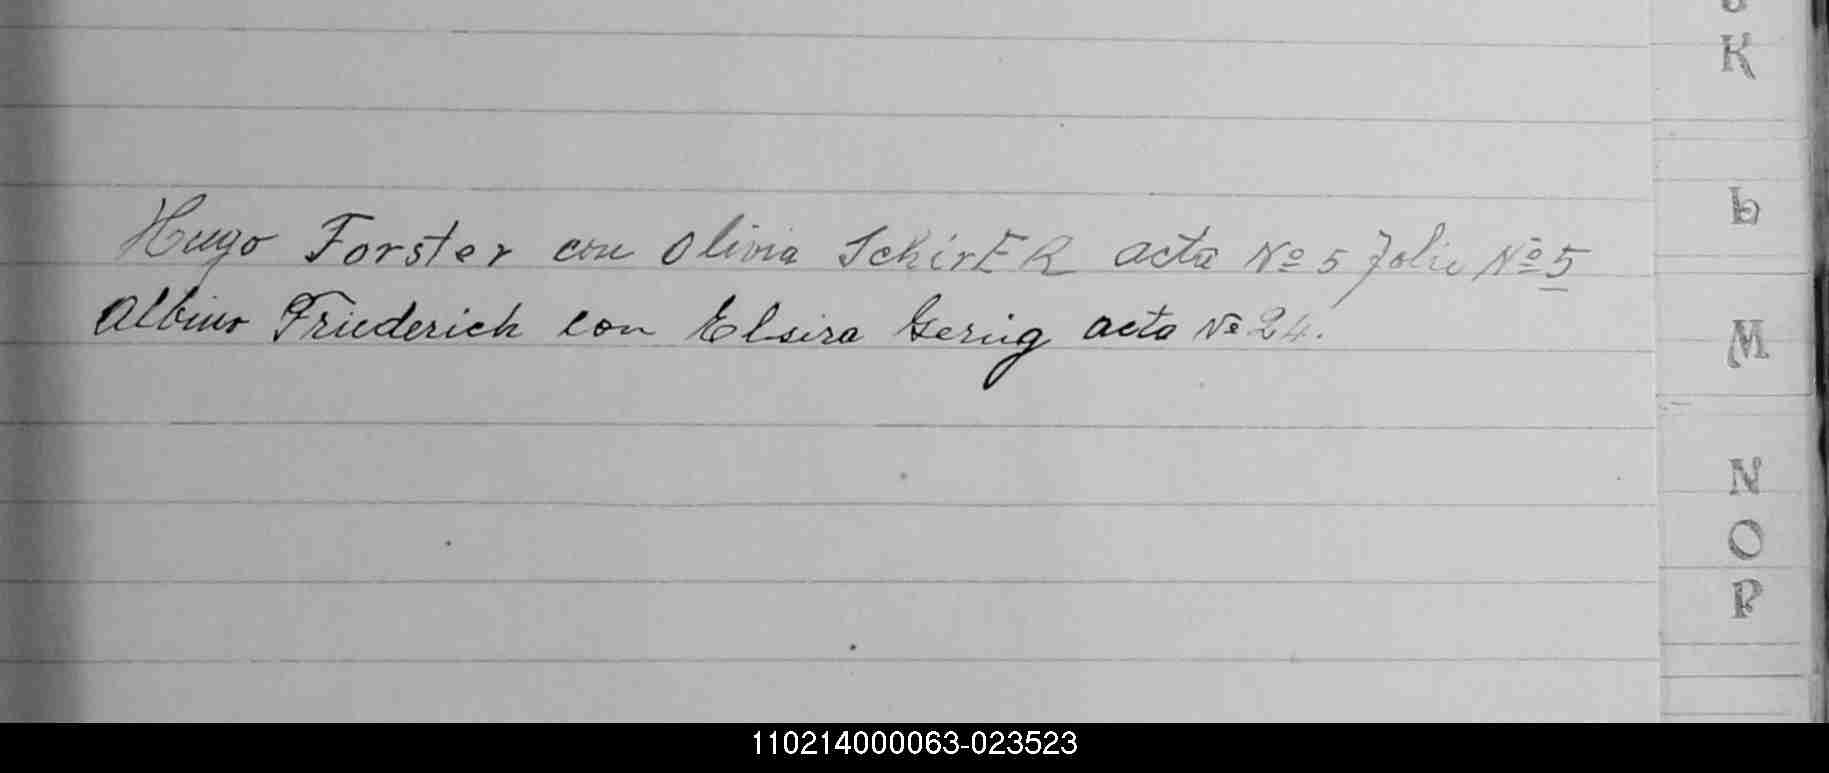 K
Hugo Forster con Olivia SchirER acta Nº 5 folio Nº 5
Albino Friederich con Elsira Gerig acta Nº 24.
L
M
N
O
P
110214000063-023523